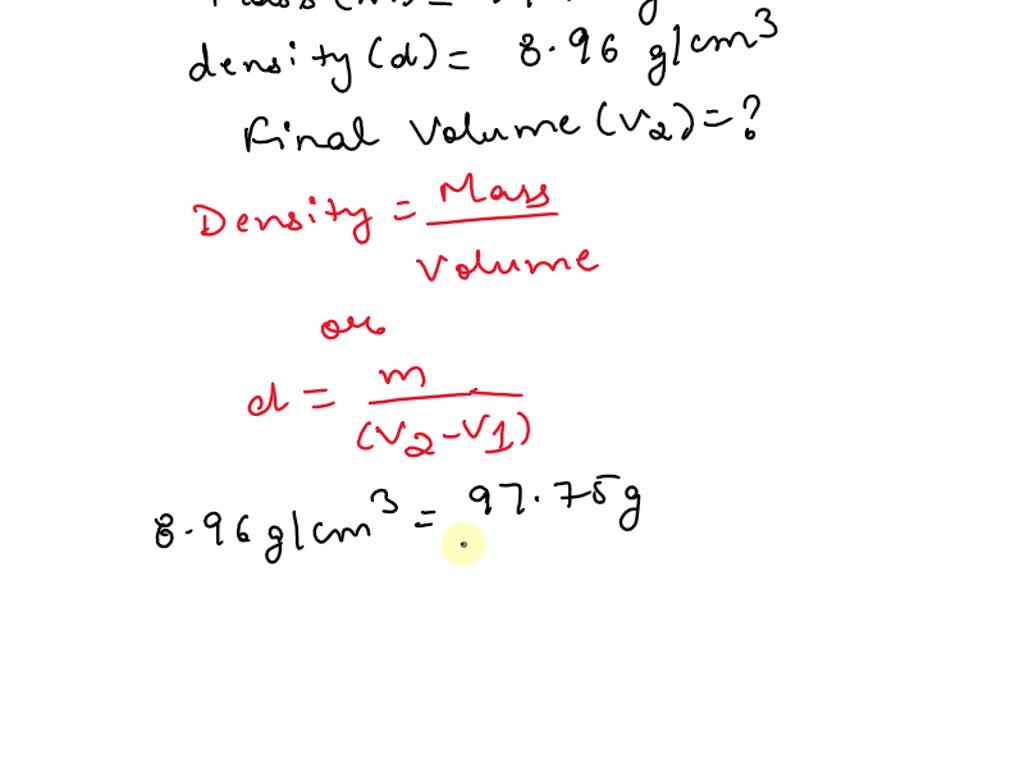 density (d) = 8.96 g/cm³
Final Volume (V₂) = ?
Density = Mass
Volume
or
d = m
(V₂ - V1)
8.96 g/cm³ = 97.75g